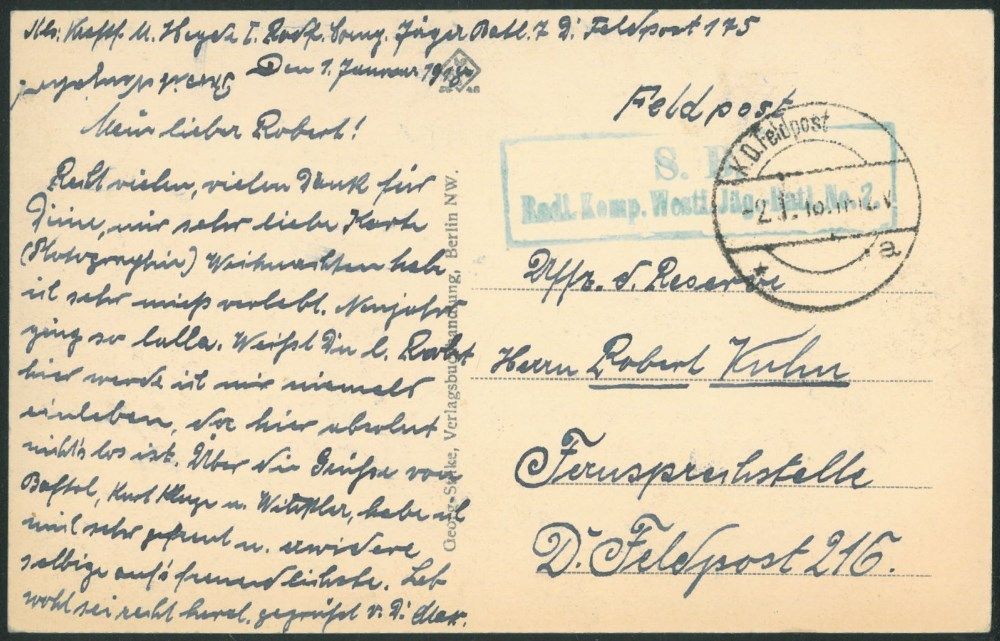 Jäger Batl. 7 D. Feldpost 175
Den 1. Januar 1918.
Mein lieber Robert!
Recht vielen, vielen Dank für
Deine, mir sehr liebe Karte
(Photographie) Weihnachten habe
ich sehr mieß verlebt. Neujahr
ging so lalla. Weißt Du l. Robert
hier werde ich mir niemals
einleben, da hier absolut
nichts los ist. Über die Grüße von
Kurt Kluge u. habe ich
mich sehr gefreut u. erwidere
selbige auf's freundlichste. Leb
wohl sei recht herzl. gegrüßt v. D. Max.
Georg Stilke, Verlagsbuchhandlung, Berlin NW.
Feldpost
S. B.
Radf. Komp. Westf. Jäg. Batl. No. 7.
K.D. Feldpost
a
Uffz. d. Reserve
Herrn Robert Kuhn
Fernsprechstelle
D. Feldpost 216.